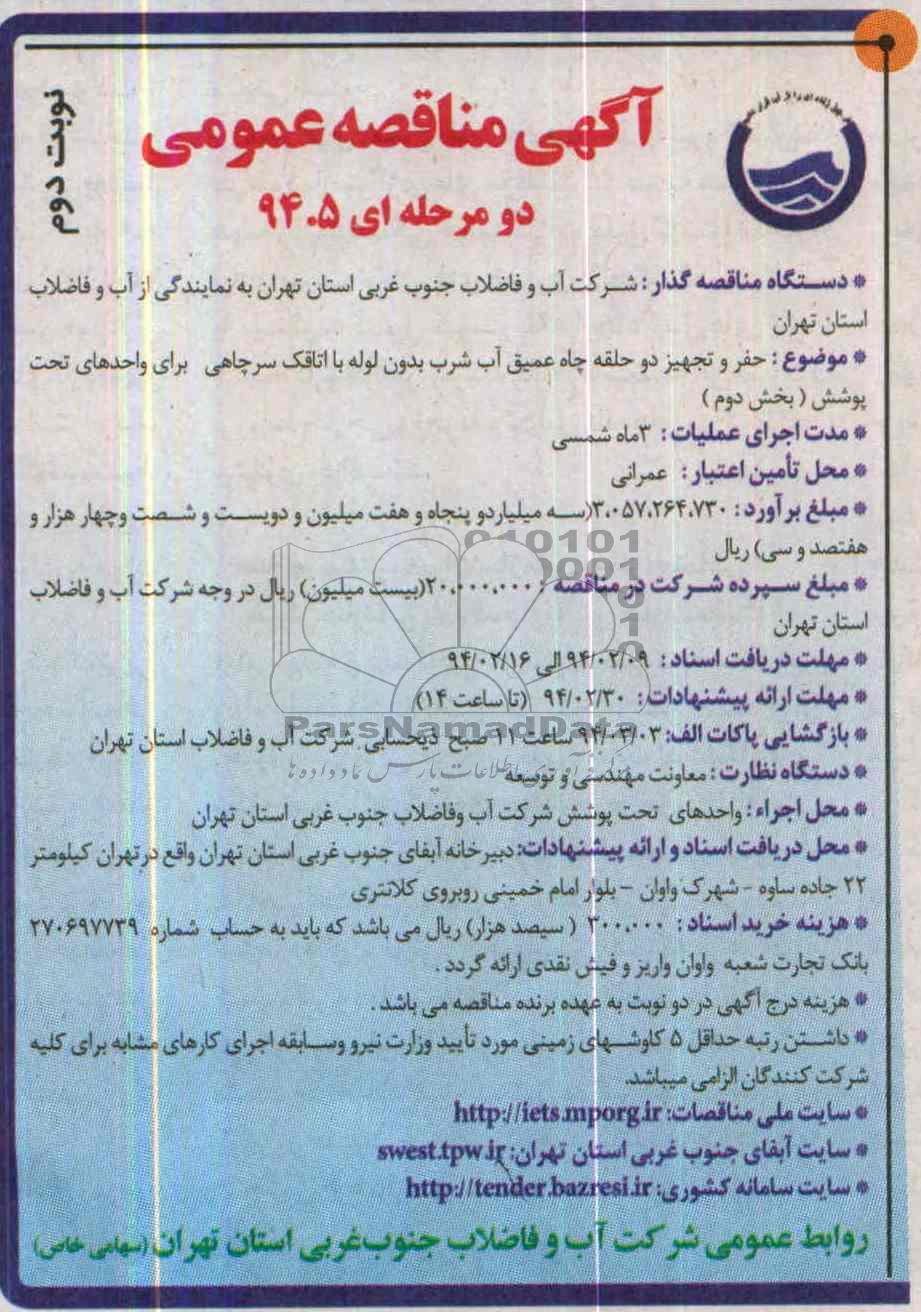 نوبت دوم
آگهی مناقصه عمومی
دو مرحله ای ۹۴.۵
* دستگاه مناقصه گذار : شرکت آب و فاضلاب جنوب غربی استان تهران به نمایندگی از آب و فاضلاب
استان تهران
* موضوع : حفر و تجهیز دو حلقه چاه عمیق آب شرب بدون لوله با اتاقک سرچاهی برای واحدهای تحت
پوشش ( بخش دوم )
* مدت اجرای عملیات : ۳ماه شمسی
* محل تأمین اعتبار : عمرانی
* مبلغ برآورد : ۳،۰۵۷،۲۶۴،۷۳۰(سه میلیاردو پنجاه و هفت میلیون و دویست و شصت وچهار هزار و
هفتصد و سی) ریال
* مبلغ سپرده شرکت در مناقصه : ۲۰،۰۰۰،۰۰۰(بیست میلیون) ریال در وجه شرکت آب و فاضلاب
استان تهران
* مهلت دریافت اسناد : ۹۴/۰۲/۰۹ الی ۹۴/۰۲/۱۶
* مهلت ارائه پیشنهادات : ۹۴/۰۲/۳۰ (تا ساعت ۱۴)
ParsNamadData
* بازگشایی پاکات الف: ۹۴/۰۳/۰۳ ساعت ۱۱ صبح ذیحسابی شرکت آب و فاضلاب استان تهران
* دستگاه نظارت : معاونت مهندسی و توسعه
* محل اجراء : واحدهای تحت پوشش شرکت آب وفاضلاب جنوب غربی استان تهران
* محل دریافت اسناد و ارائه پیشنهادات: دبیرخانه آبفای جنوب غربی استان تهران واقع در تهران کیلومتر
۲۲ جاده ساوه - شهرک واوان - بلوار امام خمینی روبروی کلانتری
* هزینه خرید اسناد : ۳۰۰،۰۰۰ ( سیصد هزار) ریال می باشد که باید به حساب شماره ۲۷۰۶۹۷۷۳۹
بانک تجارت شعبه واوان واریز و فیش نقدی ارائه گردد .
* هزینه درج آگهی در دو نوبت به عهده برنده مناقصه می باشد .
* داشتن رتبه حداقل ۵ کاوشهای زمینی مورد تأیید وزارت نیرو وسابقه اجرای کارهای مشابه برای کلیه
شرکت کنندگان الزامی میباشد.
* سایت ملی مناقصات: http://iets.mporg.ir
* سایت آبفای جنوب غربی استان تهران: swest.tpw.ir
* سایت سامانه کشوری: http://tender.bazresi.ir
روابط عمومی شرکت آب و فاضلاب جنوب‌غربی استان تهران (سهامی خاص)